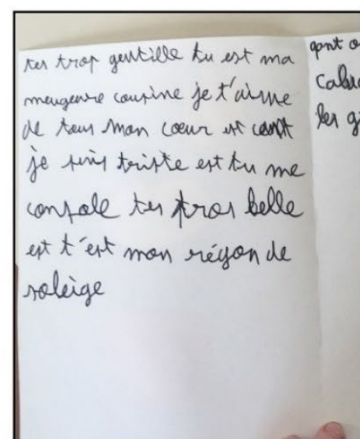 tes trop gentille tu est ma
meugeure cousine je t'aime
de tous mon cœur et cant
je suis triste est tu me
console tes tros belle
est t'est mon réyon de
soleige
qont